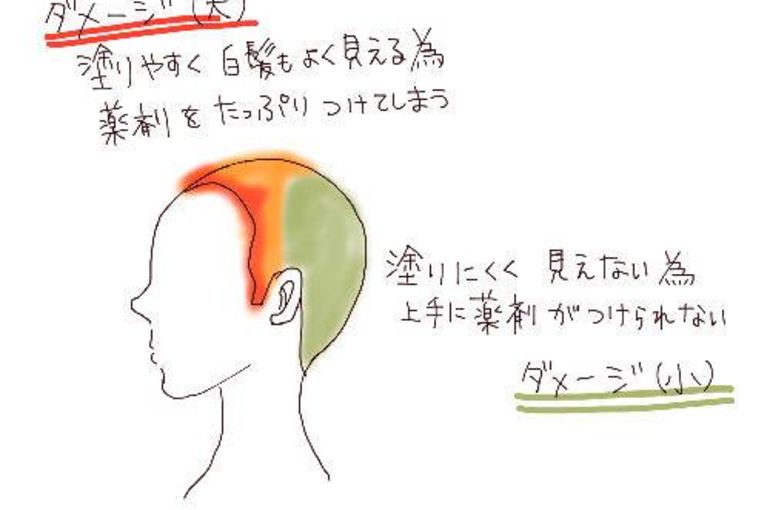 ダメージ(大)
塗りやすく 白髪もよく見える為
薬剤を たっぷり つけてしまう
塗りにくく 見えない為
上手に薬剤がつけられない
ダメージ(小)